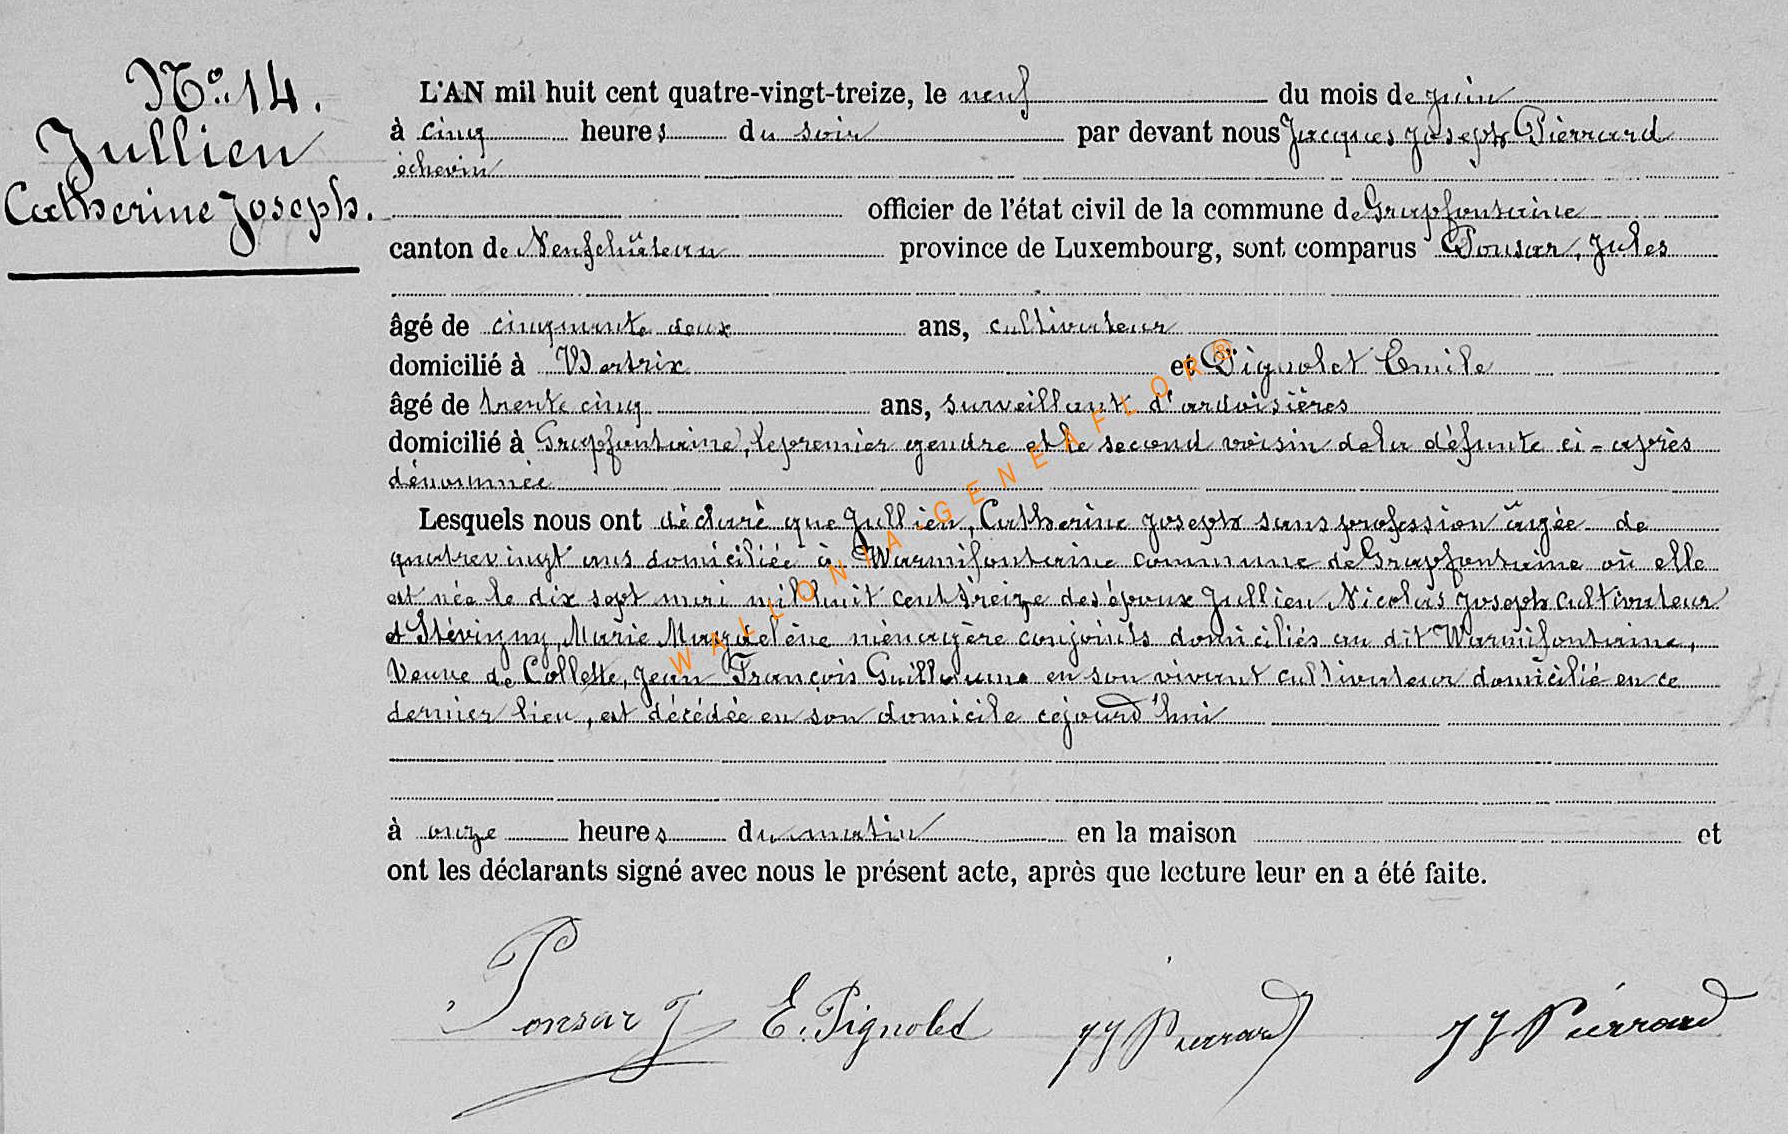 No. 14.
Jullien
Catherine Joseph.
L'AN mil huit cent quatre-vingt-treize, le neuf du mois de juin
à cinq heures du soir par devant nous Jacques Joseph Pierrard
échevin
officier de l'état civil de la commune de Grapfontaine
canton de Neufchâteau province de Luxembourg, sont comparus Ponsar, Jules
âgé de cinquante deux ans, cultivateur
domicilié à Bertrix et Pignolet Emile
âgé de trente cinq ans, surveillant d'ardoisières
domicilié à Grapfontaine, le premier gendre et le second voisin de la défunte ci-après
dénommée
Lesquels nous ont déclaré que Jullien, Catherine Joseph sans profession âgée de
quatrevingt ans domiciliée à Warmifontaine commune de Grapfontaine où elle
est née le dix sept mai mil huit cent treize des époux Jullien Nicolas Joseph cultivateur
et Stévigny, Marie Magdelène ménagère conjoints domiciliés au dit Warmifontaine,
Veuve de Collette, Jean François Guillaume en son vivant cultivateur domicilié en ce
dernier lieu, est décédée en son domicile cejourd'hui
à onze heures du matin en la maison et
ont les déclarants signé avec nous le présent acte, après que lecture leur en a été faite.
Ponsar J E. Pignolet JJ Pierrard JJ Pierrard
WALLONIA-GENEAFLOR®